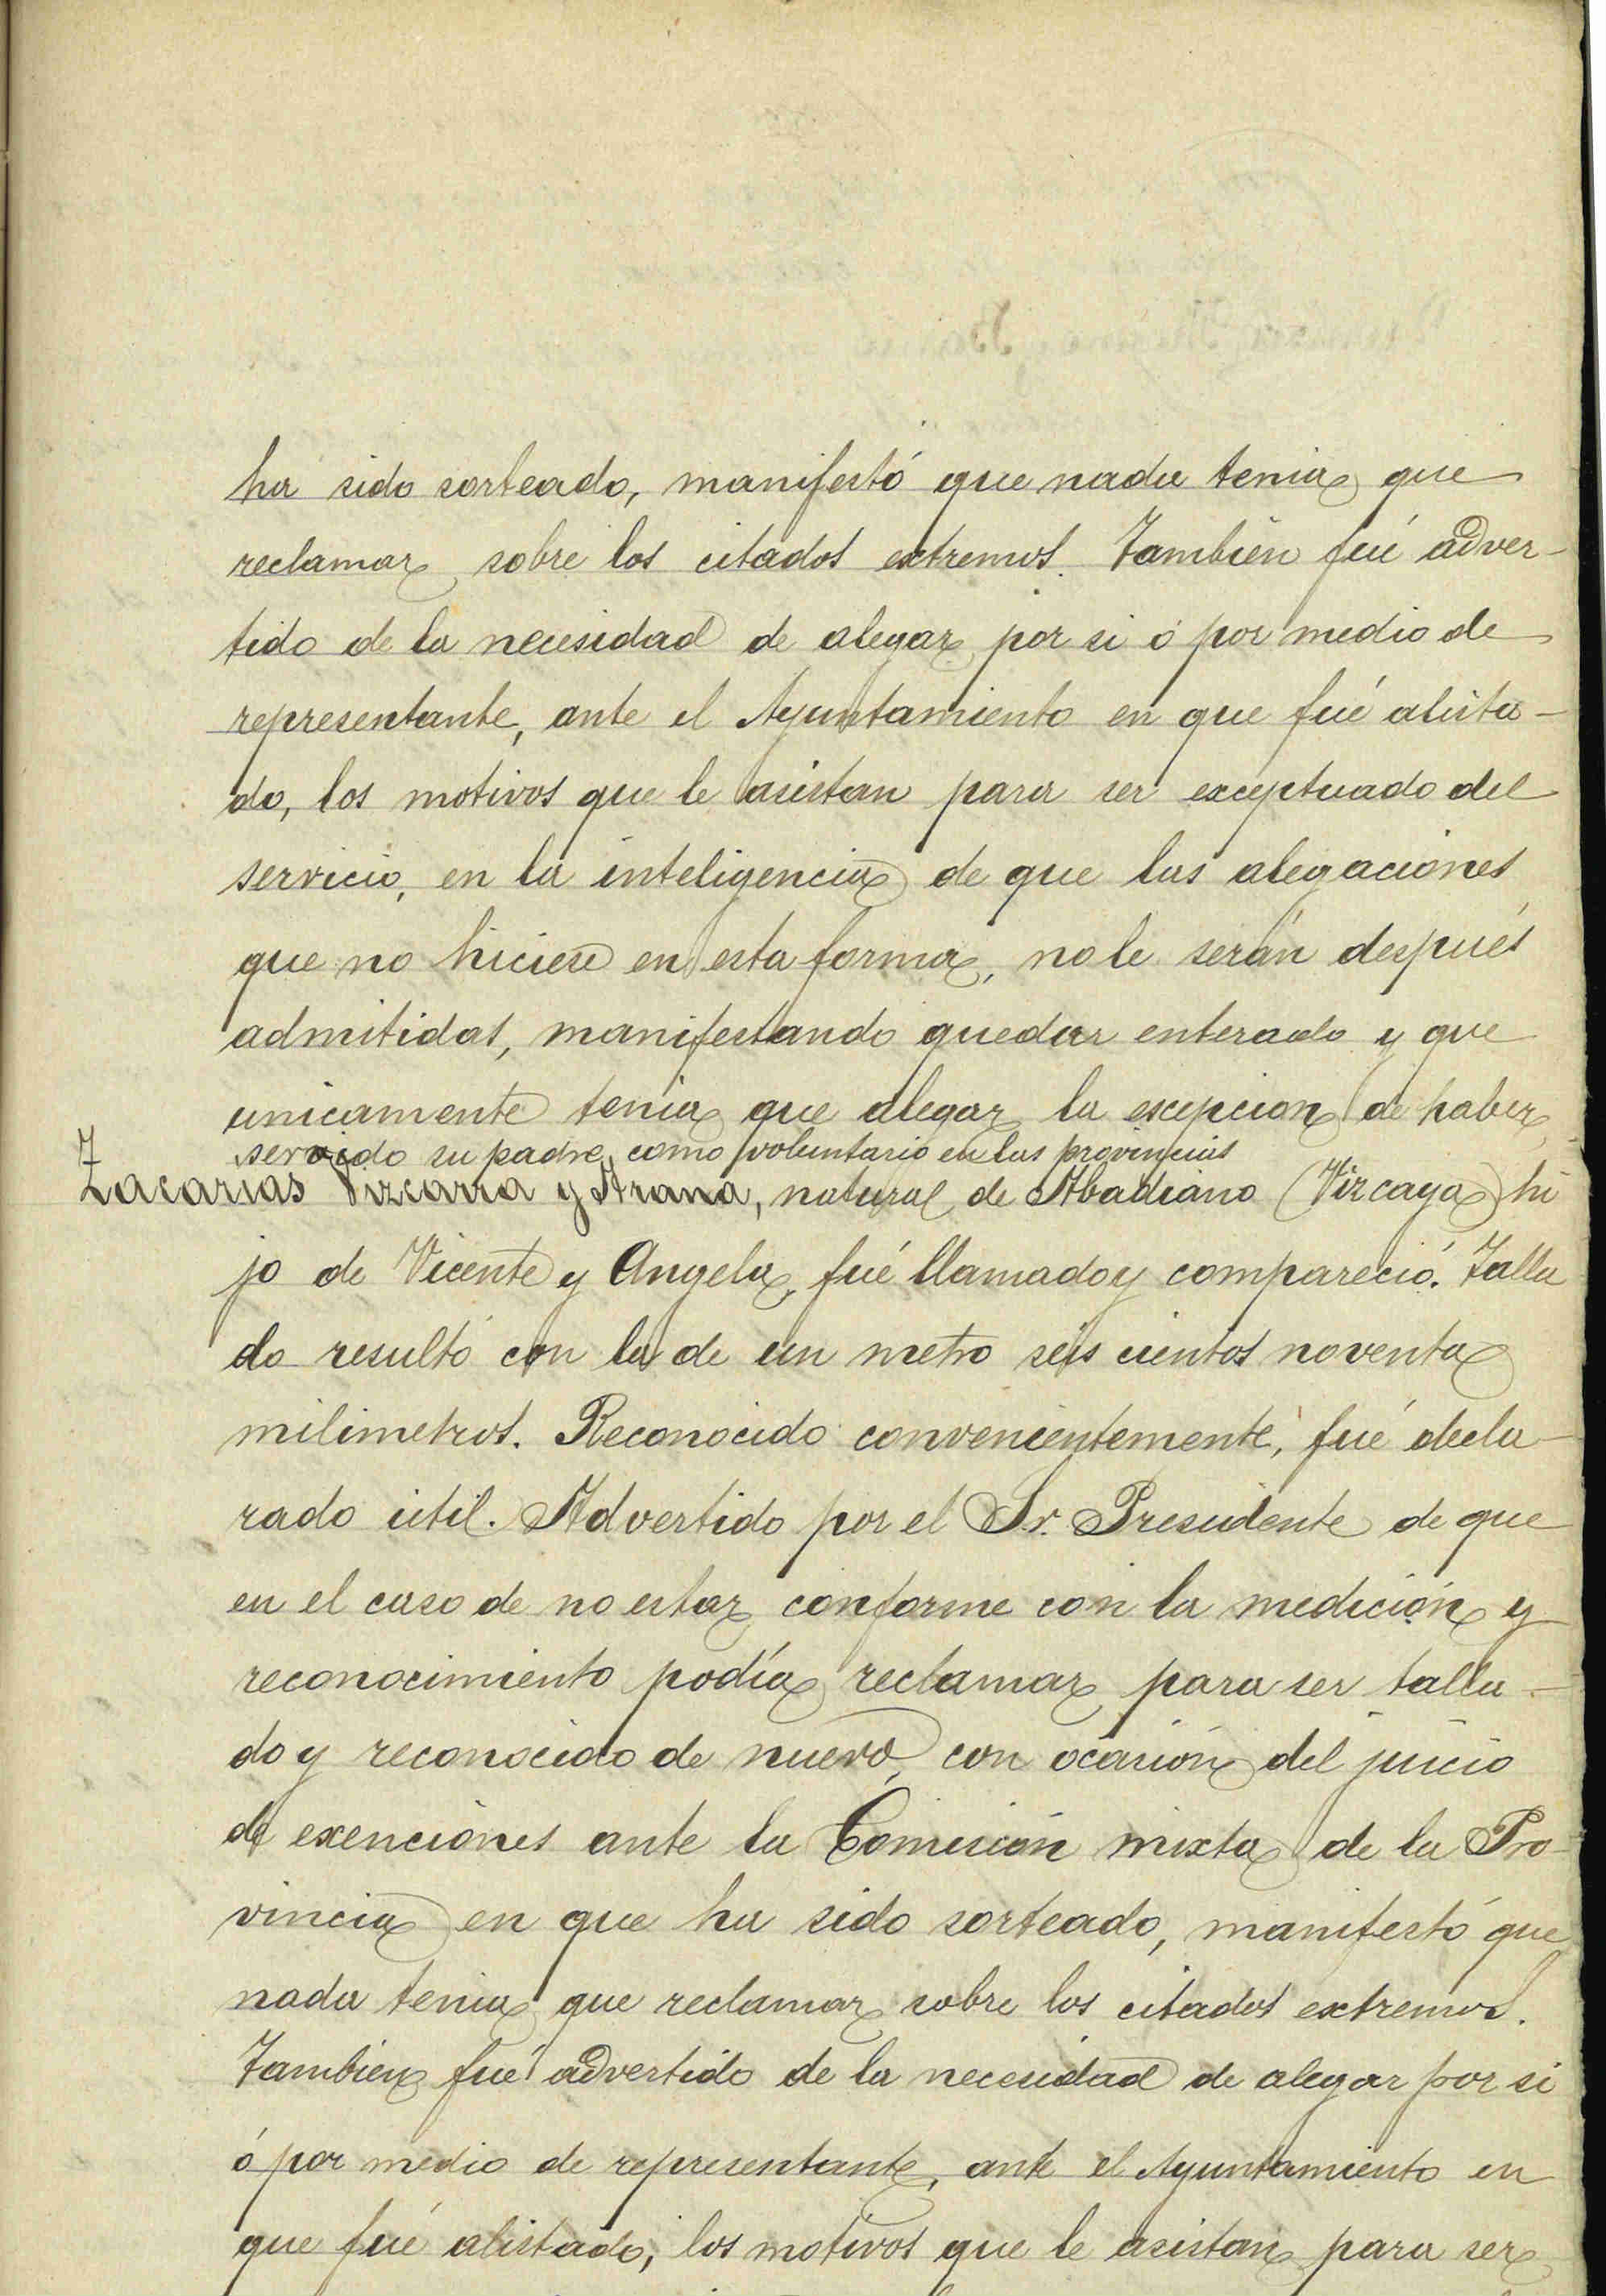 ha sido sorteado, manifestó que nada tenia que
reclamar sobre los citados extremos. Tambien fué adver-
tido de la necesidad de alegar por si ó por medio de
representante, ante el Ayuntamiento en que fué alista-
do, los motivos que le asistan para ser exceptuado del
servicio, en la inteligencia de que las alegaciones
que no hiciese en esta forma, no le serán después
admitidas, manifestando quedar enterado y que
unicamente tenia que alegar la escepcion de haber
servido su padre como voluntario en las provincias
Zacarias Vizcarra y Arana, natural de Abadiano (Vizcaya) hi
jo de Vicente y Angela, fué llamado y compareció. Talla
do resultó con la de un metro seis cientos noventa
milimetros. Reconocido convenientemente, fué decla-
rado útil. Advertido por el Sr. Presidente de que
en el caso de no estar conforme con la medición y
reconocimiento podía reclamar para ser talla-
do y reconocido de nuevo, con ocasión del juicio
de exenciones ante la Comisión mixta de la Pro-
vincia en que ha sido sorteado, manifestó que
nada tenia que reclamar sobre los citados extremos.
Tambien fué advertido de la necesidad de alegar por si
ó por medio de representante, ante el Ayuntamiento en
que fué alistado, los motivos que le asistan para ser